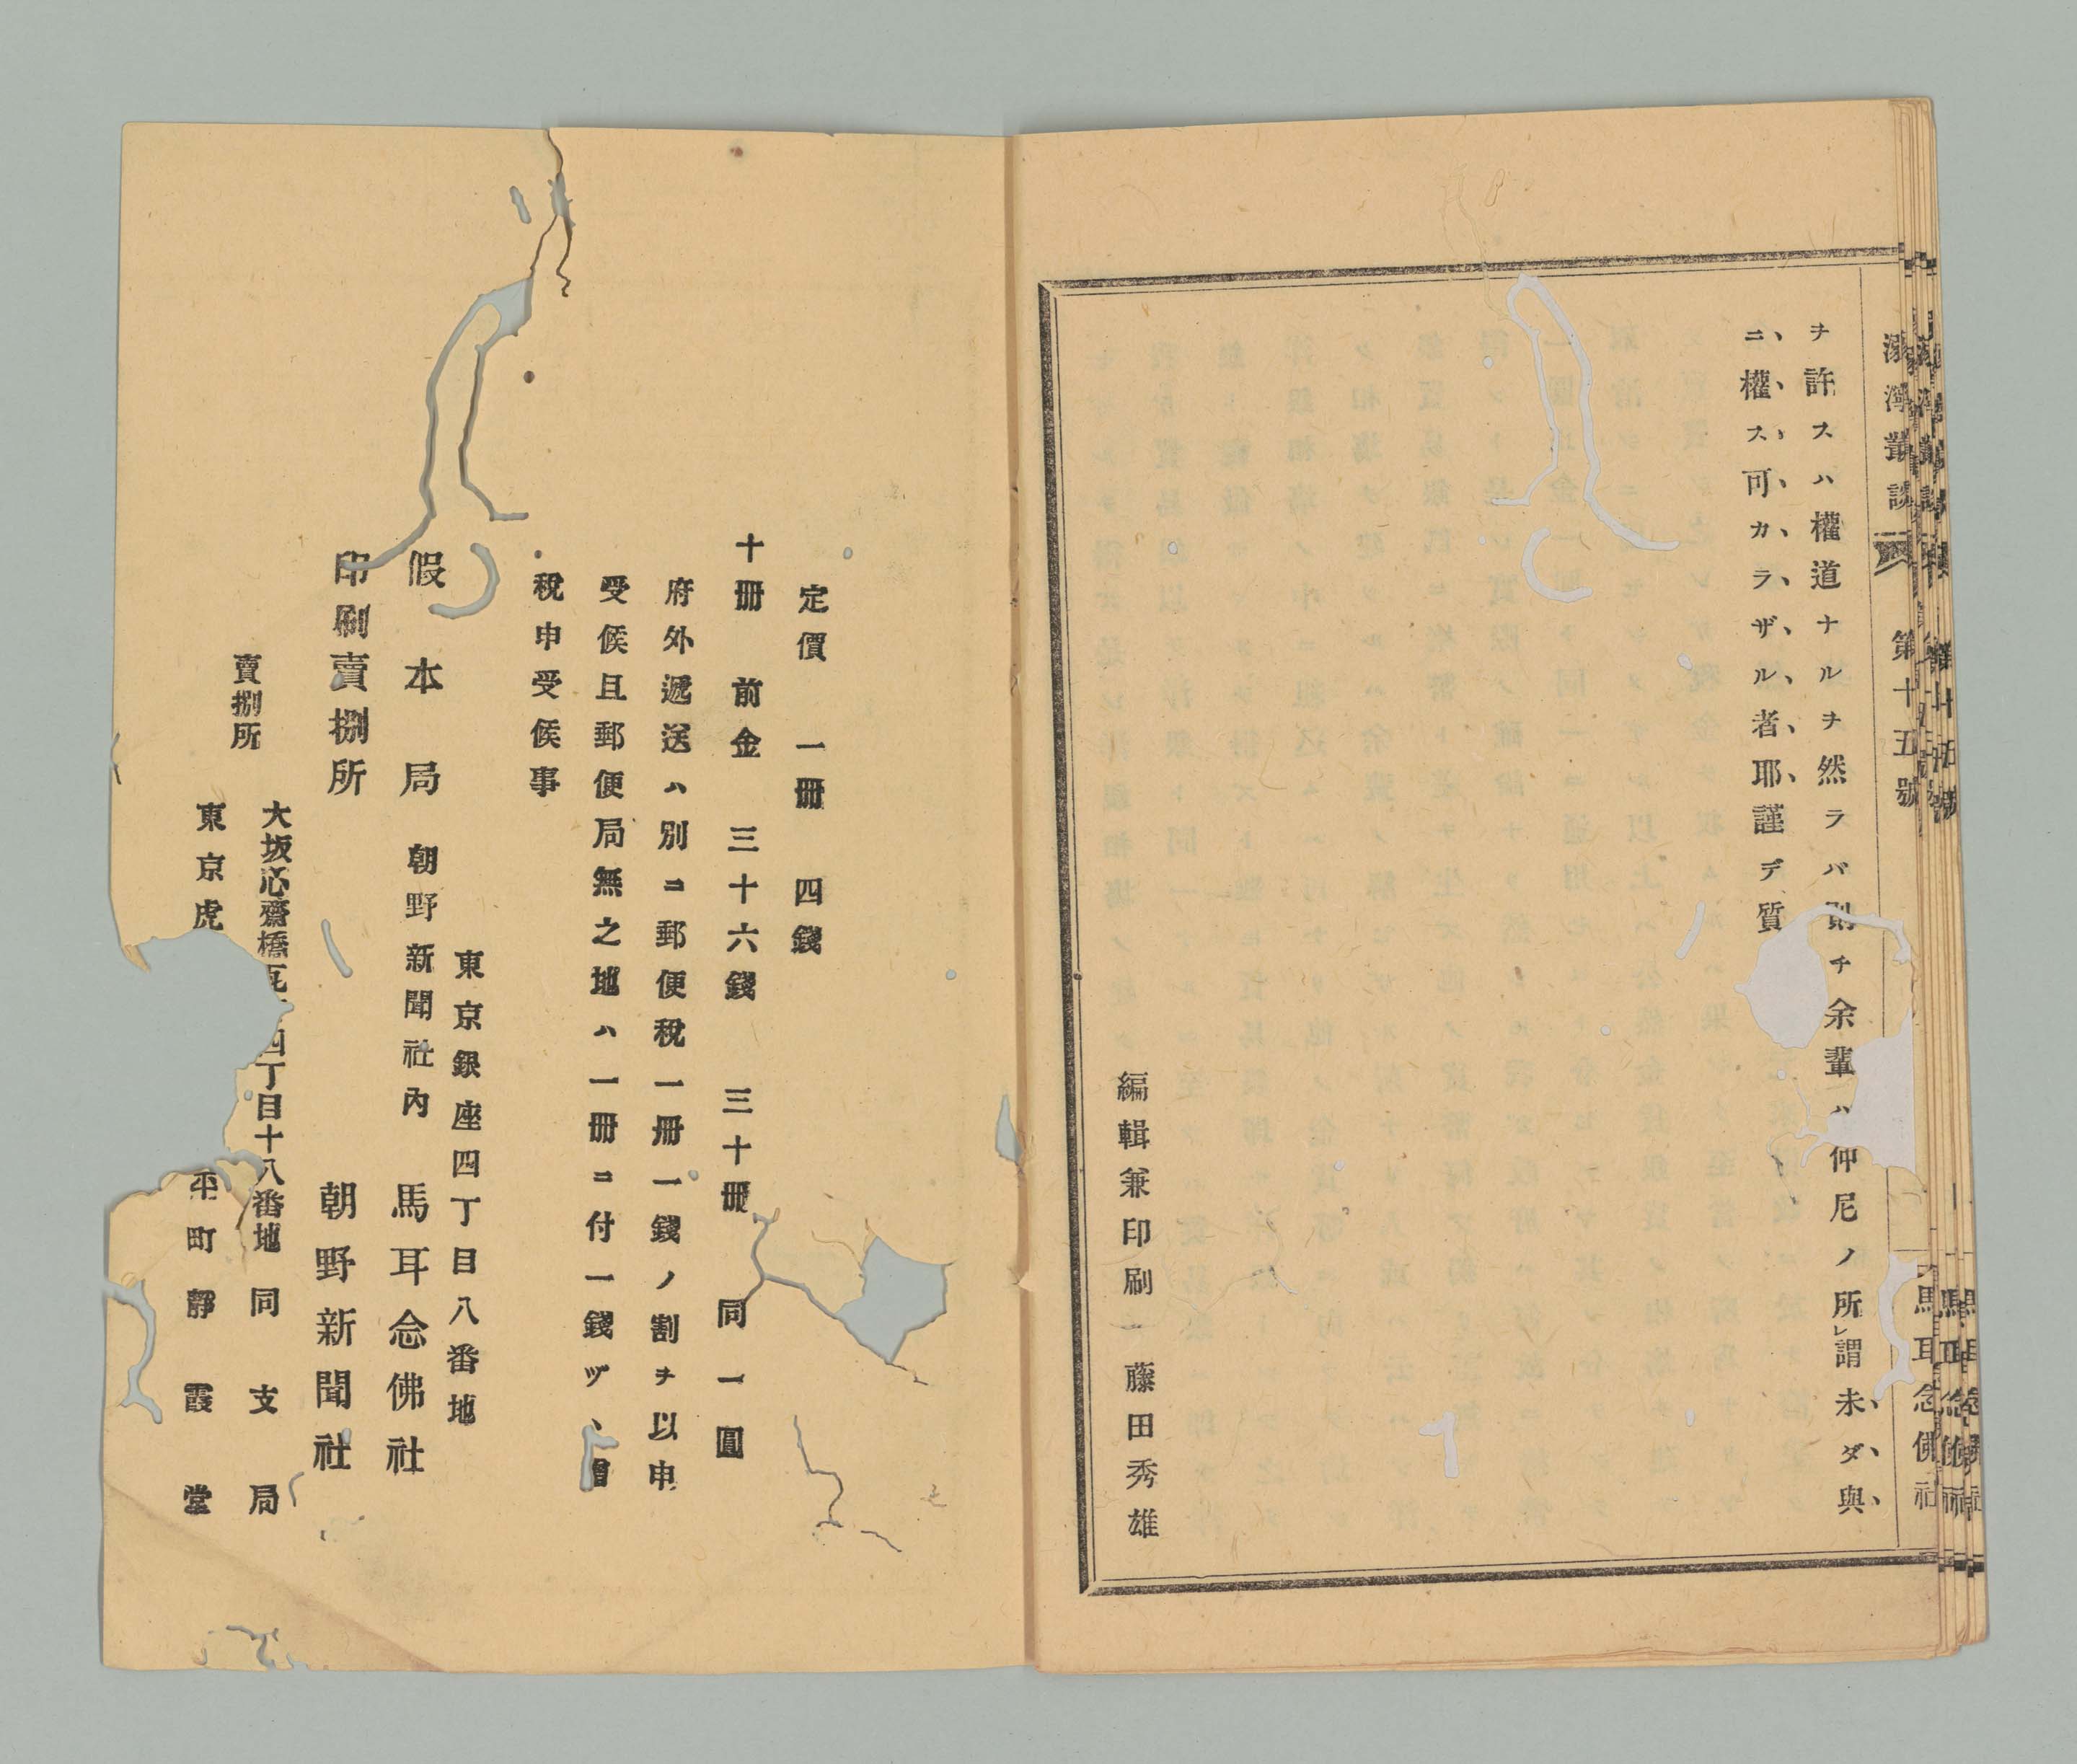 叢談 第十五號 馬耳念佛社
ヲ許スハ權道ナルヲ然ラバ則チ余輩ハ仲尼ノ所レ謂未ダ與
ニ權ス可カラザル者耶謹デ質
編輯兼印刷 藤田秀雄
定價 一冊 四錢
十冊 前金 三十六錢 三十冊 同 一圓
府外遞送ハ別ニ郵便稅一冊一錢ノ割ヲ以申
受候且郵便局無之地ハ一冊ニ付一錢ヅヽ增
稅申受候事
東京銀座四丁目八番地
假本局 朝野新聞社內 馬耳念佛社
印刷賣捌所 朝野新聞社
賣捌所
大坂心齋橋 四丁目十八番地 同支局
東京虎 平町 靜霞堂